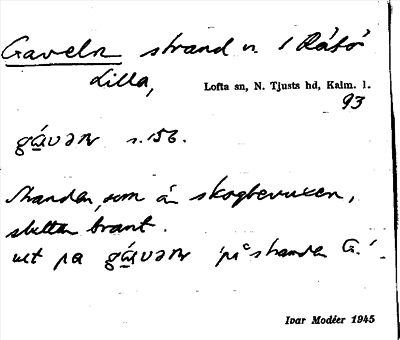 Gaveln strand n. i Råsö
Lilla,
Lofta sn, N. Tjusts hd, Kalm. l.
93
gávən s. 156.
Stranden, som är skogbevuxen,
sluttar brant.
ut på gávən 'på stranden G.'
Ivar Modéer 1945